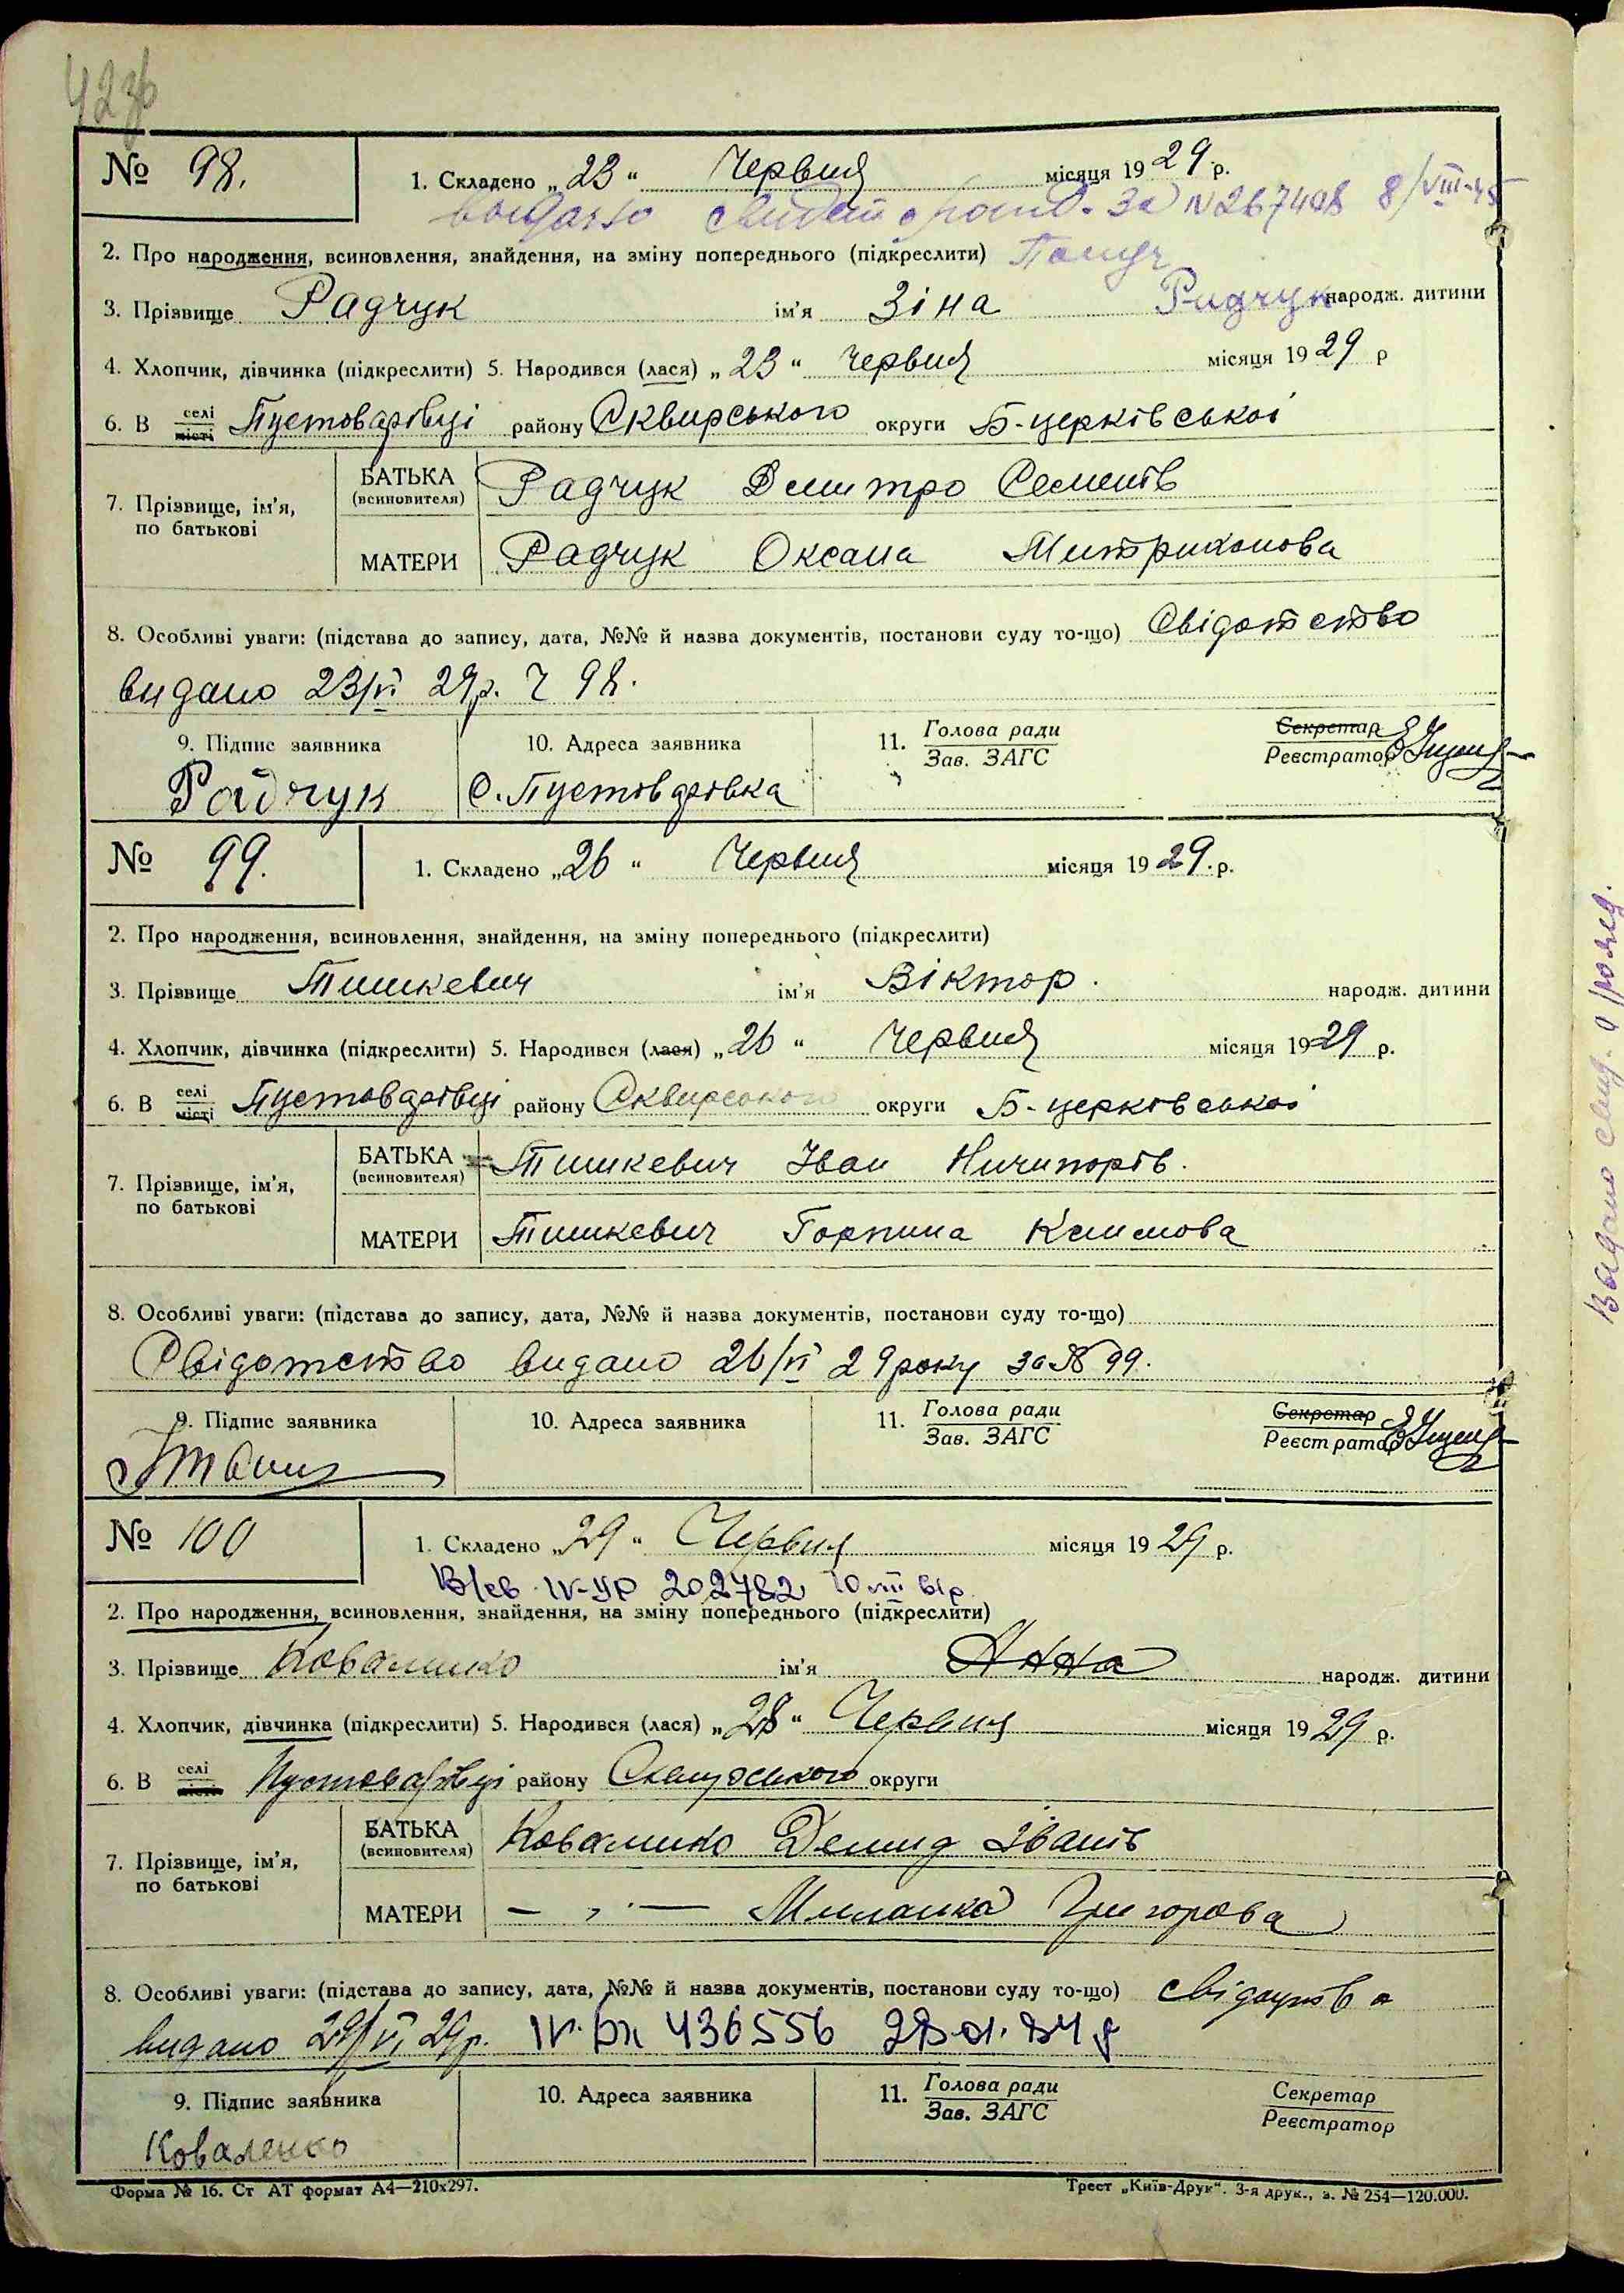 42 зв
№ 98.
1. Складено „23“ Червня місяця 1929 р.
Выдано свидет о рожд. За N 267498 8/VIII-45
2. Про народження, всиновлення, знайдення, на зміну попереднього (підкреслити)
3. Прізвище Радчук ім'я Зіна Радчук народж. дитини
4. Хлопчик, дівчинка (підкреслити) 5. Народився (лася) „23“ Червня місяця 1929 р
6. В селі місті Пустоварівці району Сквирського округи Б-церківської
7. Прізвище, ім'я, по батькові
БАТЬКА (всиновителя) Радчук Дмитро Семенів
МАТЕРИ Радчук Оксана Митрихонова
8. Особливі уваги: (підстава до запису, дата, №№ й назва документів, постанови суду то-що) Свідотство
видано 23/VI 29р. Ч 98.
9. Підпис заявника 10. Адреса заявника 11. Голова ради Зав. ЗАГС Секретар Реєстратор
Радчук С. Пустоварівка
№ 99.
1. Складено „26“ Червня місяця 1929. р.
2. Про народження, всиновлення, знайдення, на зміну попереднього (підкреслити)
3. Прізвище Тишкевич ім'я Віктор. народж. дитини
4. Хлопчик, дівчинка (підкреслити) 5. Народився (лася) „26“ Червня місяця 1929 р.
6. В селі місті Пустоварівці району Сквирського округи Б-церківської
7. Прізвище, ім'я, по батькові
БАТЬКА (всиновителя) Тишкевич Іван Ничипорів.
МАТЕРИ Тишкевич Горпина Климова
8. Особливі уваги: (підстава до запису, дата, №№ й назва документів, постанови суду то-що)
Свідотство видано 26/VI 29 року за № 99.
9. Підпис заявника 10. Адреса заявника 11. Голова ради Зав. ЗАГС Секретар Реєстратор
№ 100
1. Складено „29“ Червня місяця 1929 р.
В/св. IV-УР 202782 10 VIII 61р.
2. Про народження, всиновлення, знайдення, на зміну попереднього (підкреслити)
3. Прізвище Коваленко ім'я Анна народж. дитини
4. Хлопчик, дівчинка (підкреслити) 5. Народився (лася) „28“ Червня місяця 1929 р.
6. В селі місті Пустоварівці району Сквирського округи
7. Прізвище, ім'я, по батькові
БАТЬКА (всиновителя) Коваленко Демид Іванів
МАТЕРИ — „ — Миланка Григорова
8. Особливі уваги: (підстава до запису, дата, №№ й назва документів, постанови суду то-що)
видано 29/VI 29р. 436556
9. Підпис заявника 10. Адреса заявника 11. Голова ради Зав. ЗАГС Секретар Реєстратор
Коваленко
Форма № 16. Ст АТ формат А4—210х297.
Трест „Київ-Друк“. 3-я друк., з. № 254—120.000.
Видано свид. о рожд.